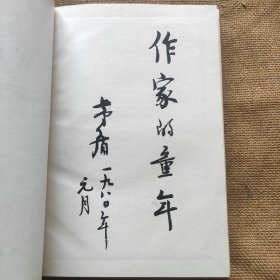 作家的童年
茅盾 一九八〇年
元月